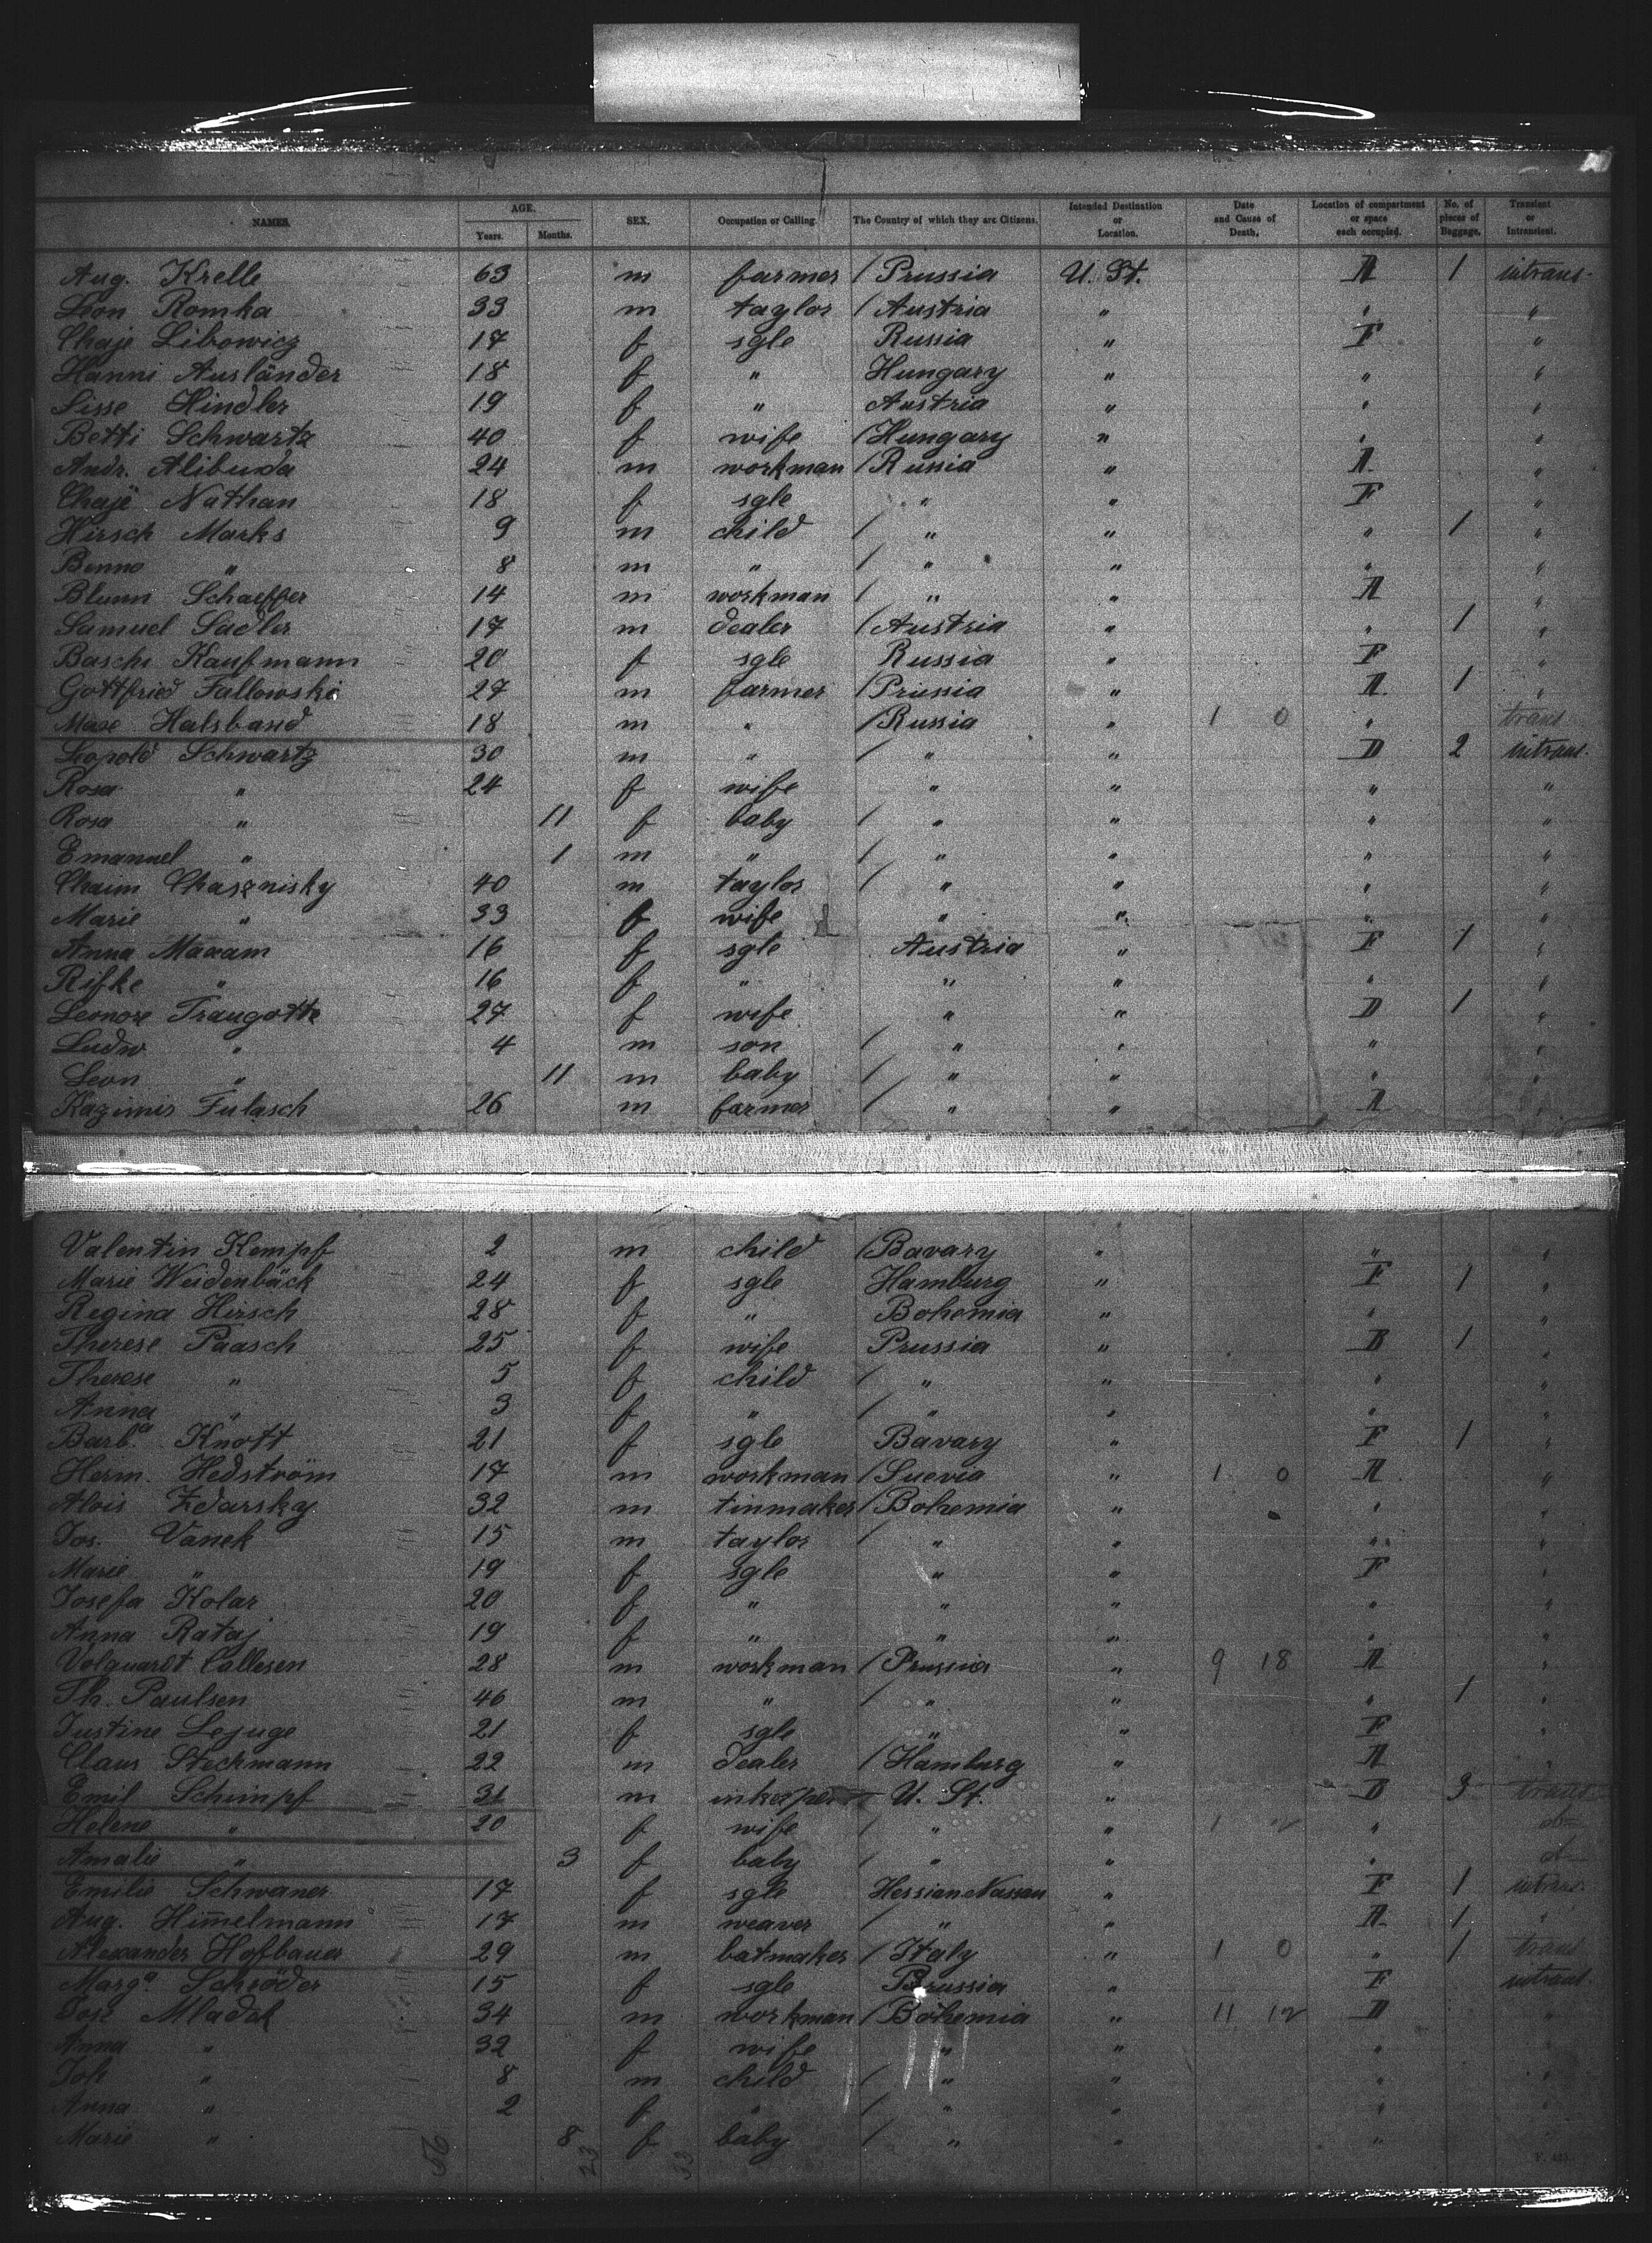 NAMES. AGE. Years. Months. SEX. Occupation or Calling. The Country of which they are Citizens. Intended Destination or Location. Date and Cause of Death. Location of compartment or space each occupied. No. of pieces of Baggage. Transient or Intransient.
Aug. Krelle 63 m farmer / Prussia U. St. A 1 intrans.
Leon Romka 33 m taylor / Austria " " "
Chaje Libowicz 17 f sgle Russia " F "
Hanni Ausländer 18 f " Hungary " " "
Lisse Hindler 19 f " Austria " " "
Betti Schwartz 40 f wife / Hungary " " "
Andr. Alibuda 24 m workman / Russia " A "
Chaje Nathan 18 f sgle " " F "
Hirsch Marks 9 m child / " " " 1 "
Benno " 8 m " / " " " "
Blum Schaeffer 14 m workman / " " A "
Samuel Sadler 17 m dealer / Austria " " 1 "
Basche Kaufmann 20 f sgle Russia " F "
Gottfried Fallowski 27 m farmer / Prussia " A 1 "
Max Halsband 18 m " / Russia " 1 0 " trans
Leopold Schwartz 30 m " / " " D 2 intrans.
Rosa " 24 f wife " " " "
Rosa " 11 f baby / " " " "
Emanuel " 1 m " / " " " "
Chaim Chasznisky 40 m taylor / " " " "
Marie " 33 f wife " " " "
Anna Maxam 16 f sgle Austria " F 1 "
Rifke " 16 f " " " " "
Leonore Traugotte 27 f wife " " D 1 "
Ludw " 4 m son / " " " "
Leon " 11 m baby / " " " "
Kazimir Fulasch 26 m farmer / " " A "
Valentin Kempf 2 m child / Bavary " " "
Marie Weidenbäck 24 f sgle Hamburg " F 1 "
Regina Hirsch 28 f " Bohemia " " "
Therese Paasch 25 f wife Prussia " B 1 "
Therese " 5 f child / " " " "
Anna " 3 f " / " " " "
Barb.a Knott 21 f sgle Bavary " F 1 "
Herm. Hedström 17 m workman / Suevia " 1 0 A "
Alois Zdarsky 32 m tinmaker / Bohemia " " "
Jos. Vanek 15 m taylor / " " " "
Marie " 19 f sgle " " F "
Josefa Kolar 20 f " " " " "
Anna Rataj 19 f " " " " "
Volquardt Callesen 28 m workman / Prussia " 9 18 A "
Th. Paulsen 46 m " / " " " 1 "
Justine Lejuge 21 f sgle " " F "
Claus Steckmann 22 m dealer / Hamburg " A "
Emil Schimpf 31 m inkeeper U. St. " B 3 trans
Helene " 20 f wife / " " 1 " do
Amalie " 3 f baby / " " " do
Emilie Schwaner 17 f sgle Hessian Nassau " F 1 intrans.
Aug. Him̄elmann 17 m weaver / " " A 1 "
Alexander Hofbauer 29 m batmaker / Italy " 1 0 " 1 trans
Marg.a Schröder 15 f sgle Prussia " F intrans.
Jose Mladek 34 m workman / Bohemia " 11 12 D "
Anna " 32 f wife " " " "
Joh " 8 m child / " " " "
Anna " 2 f " / " " " "
Marie " 8 f baby / " " " "
56 23 33